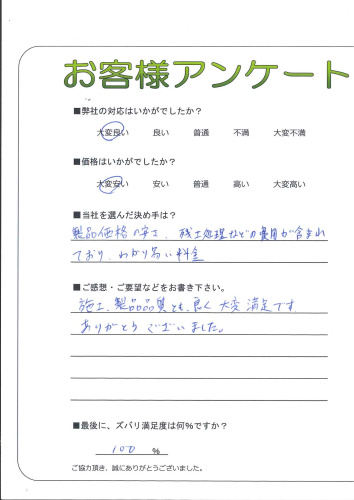 お客様アンケート
■弊社の対応はいかがでしたか？
大変良い 良い 普通 不満 大変不満
■価格はいかがでしたか？
大変安い 安い 普通 高い 大変高い
■当社を選んだ決め手は？
製品価格の安さ、残土処理などの費用が含まれ
ており、わかり易い料金
■ご感想・ご要望などをお書き下さい。
施工、製品品質とも、良く大変満足です。
ありがとうございました。
■最後に、ズバリ満足度は何%ですか？
100 %
ご協力頂き、誠にありがとうございました。